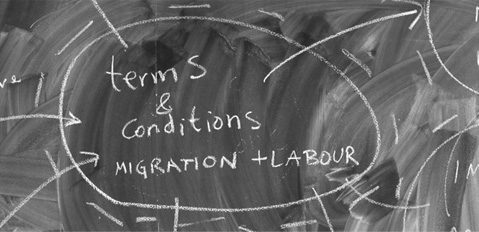 terms
&
conditions
MIGRATION + LABOUR